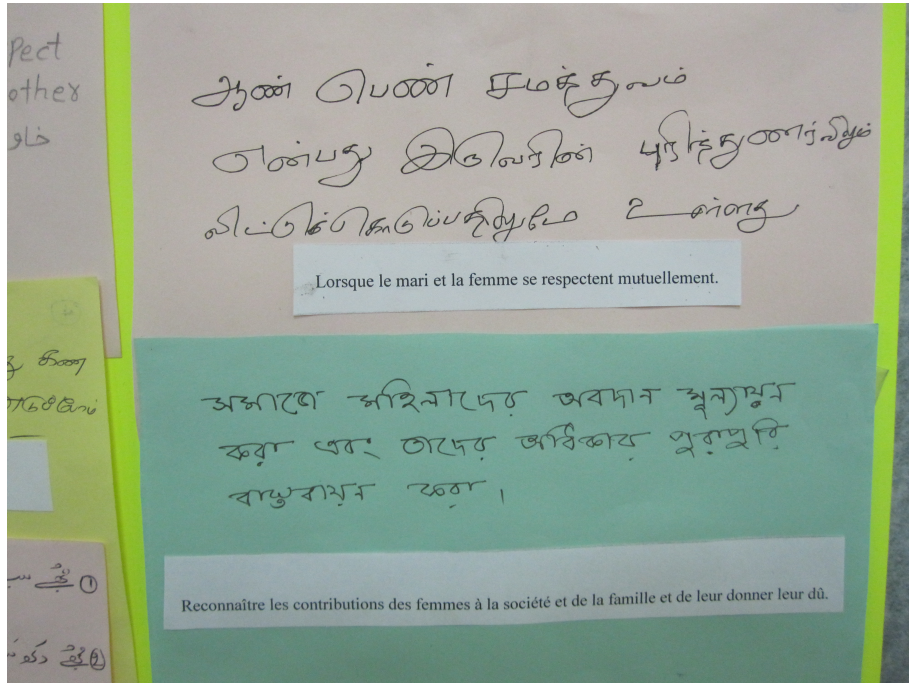 pect
other
ஆண் பெண் சமத்துவம்
என்பது இருவரின் புரிந்துணர்விலும்
விட்டுக்கொடுப்பதிலுமே உள்ளது
Lorsque le mari et la femme se respectent mutuellement.
সমাজে মহিলাদের অবদান মূল্যায়ন
করা এবং তাদের অধিকার পুরাপুরি
বাস্তবায়ন করা।
Reconnaître les contributions des femmes à la société et de la famille et de leur donner leur dû.